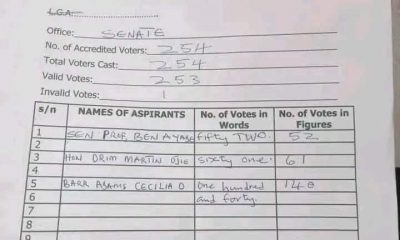 L.G.A:
Office: SENATE
No. of Accredited Voters: 254
Total Voters Cast: 254
Valid Votes: 253
Invalid Votes: 1
s/n NAMES OF ASPIRANTS No. of Votes in Words No. of Votes in Figures
1 SEN PROF BEN AYADE fifty TWO. 52
2
3 HON ORIM MARTIN OJIE sixty one. 61
4
5 BARR ADAMS CECILIA O one hundred and forty. 140
6
7
8
9